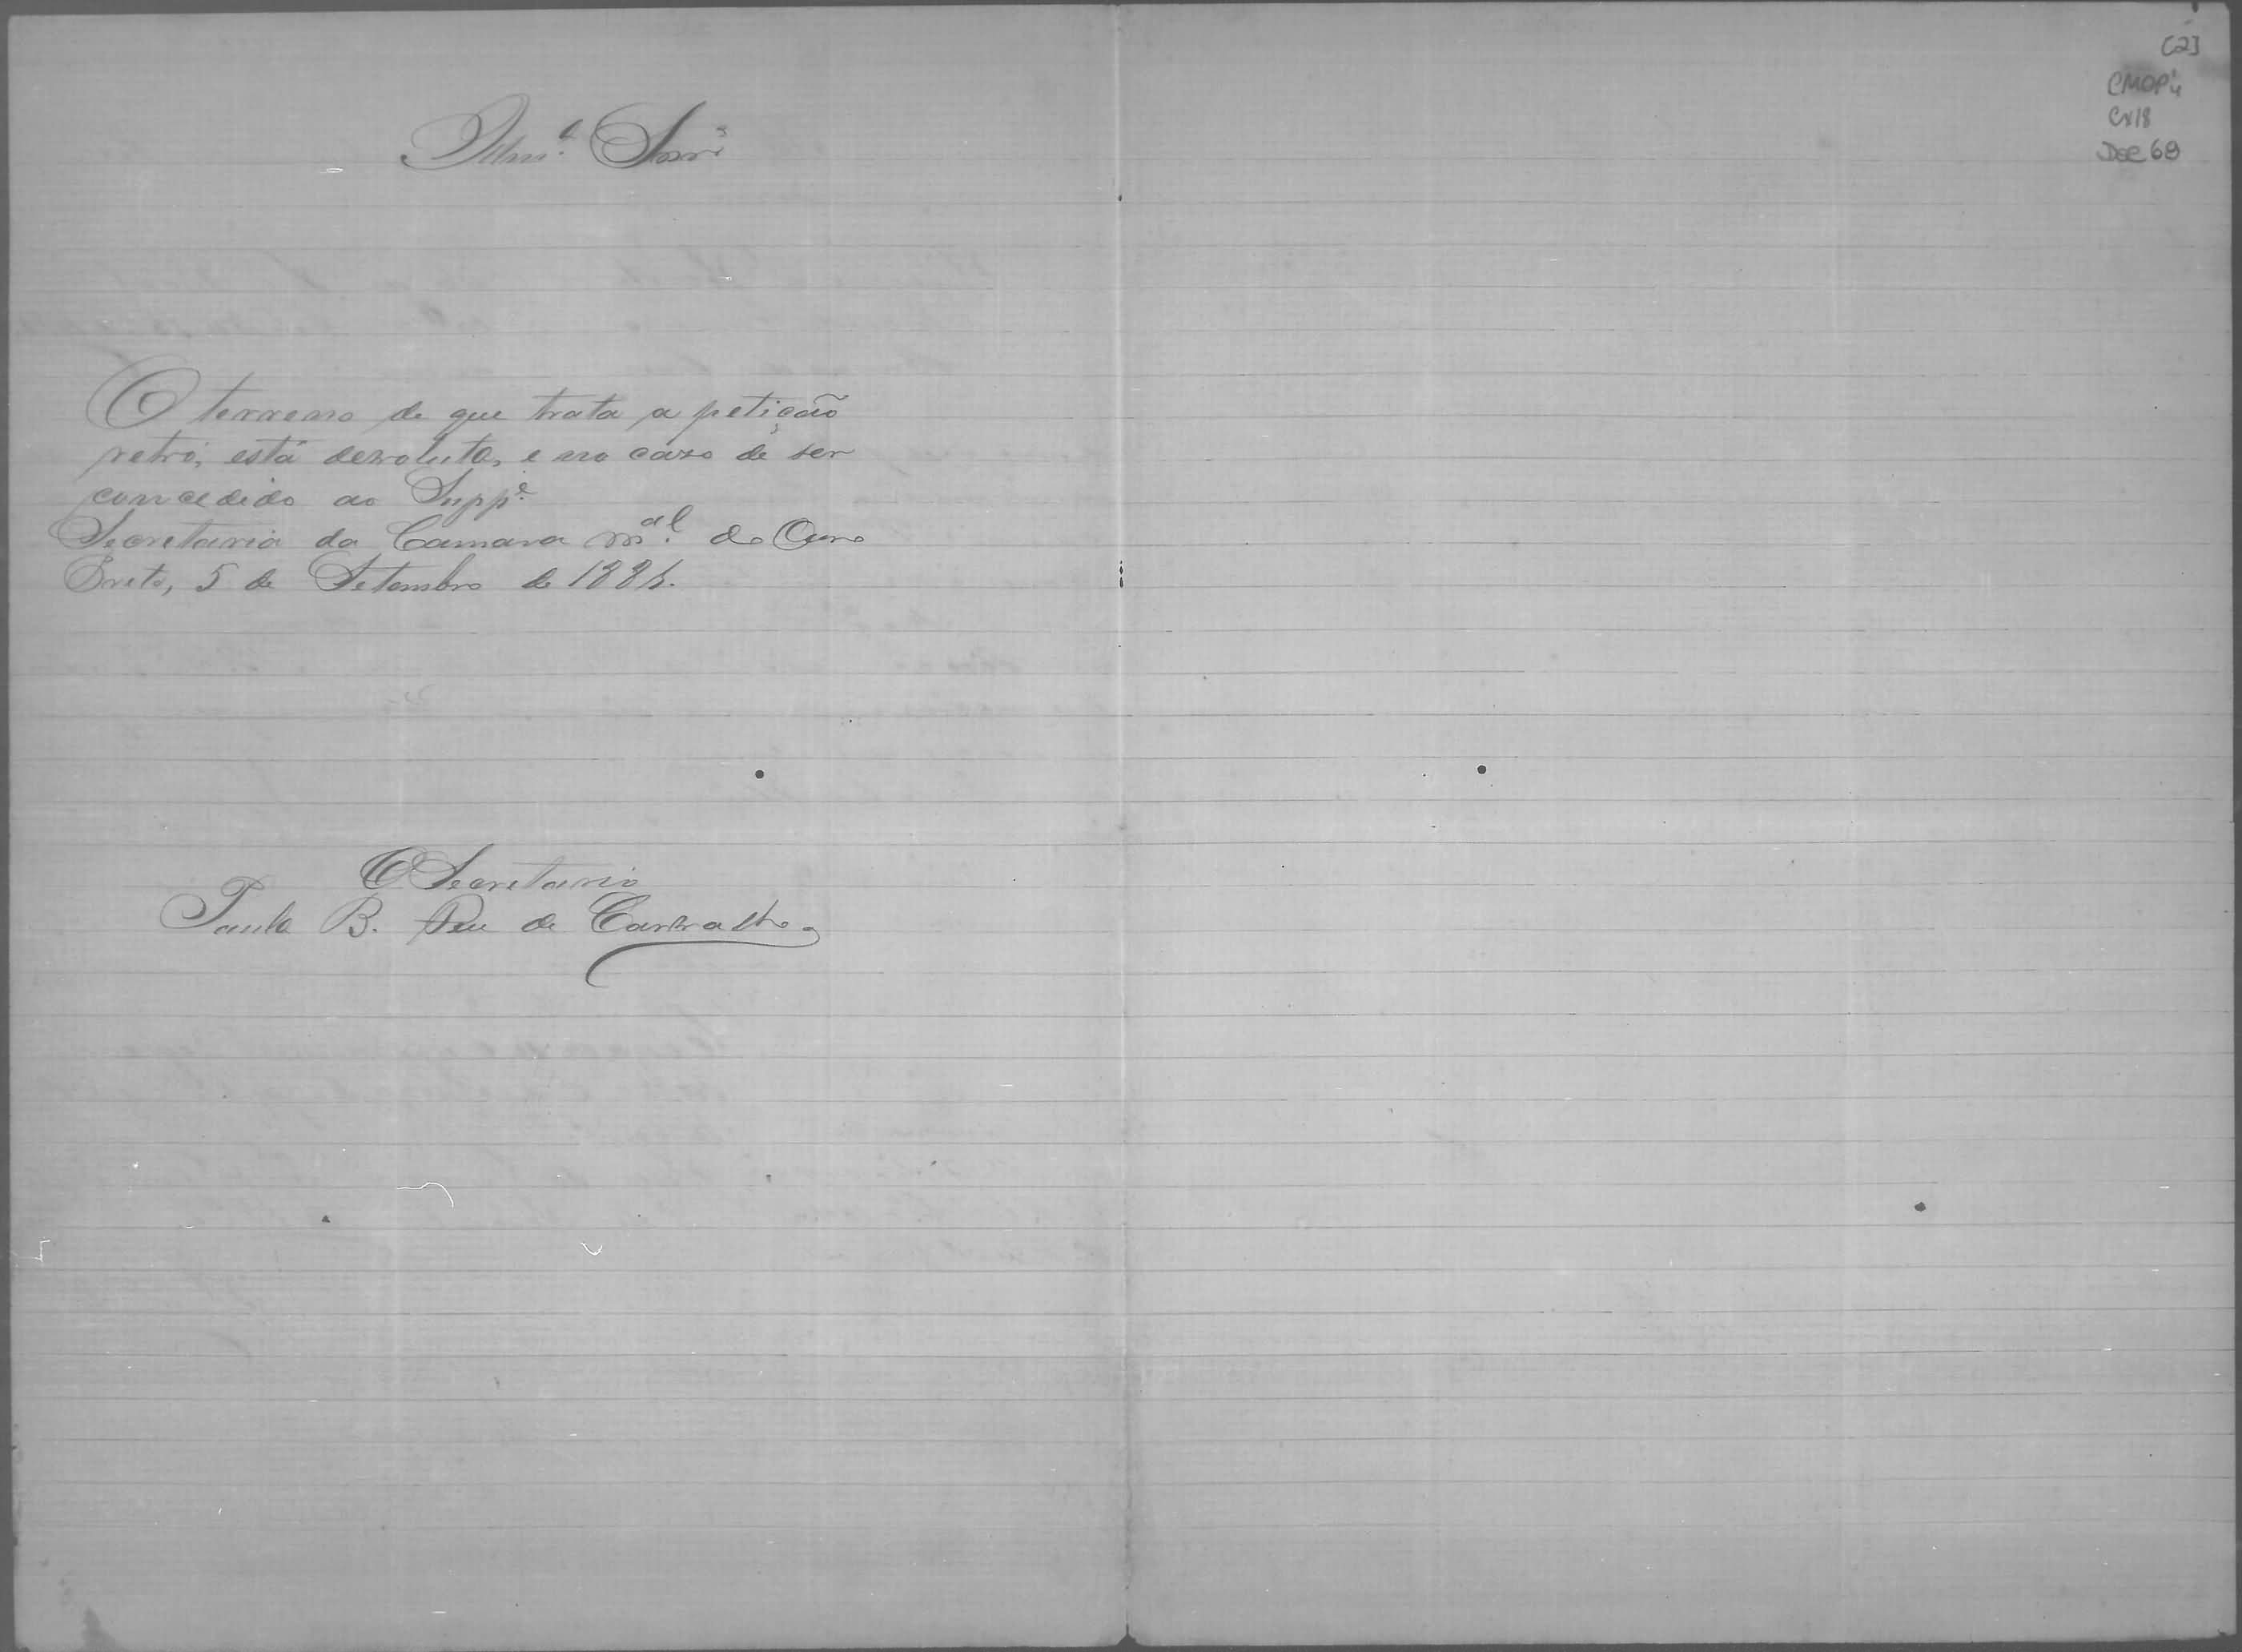 Illm.ᵉ Snrˢ
O terreno de que trata a petição
retro, está devoluto, e no caso de ser
concedido ao Suppᵉ.
Secretaria da Camara mᵃˡ. do Ouro
Preto, 5 de Setembro de 188
O Secretario
Paula B. de Carvalho.
[2]
CMOP
Cx18
Doc 68